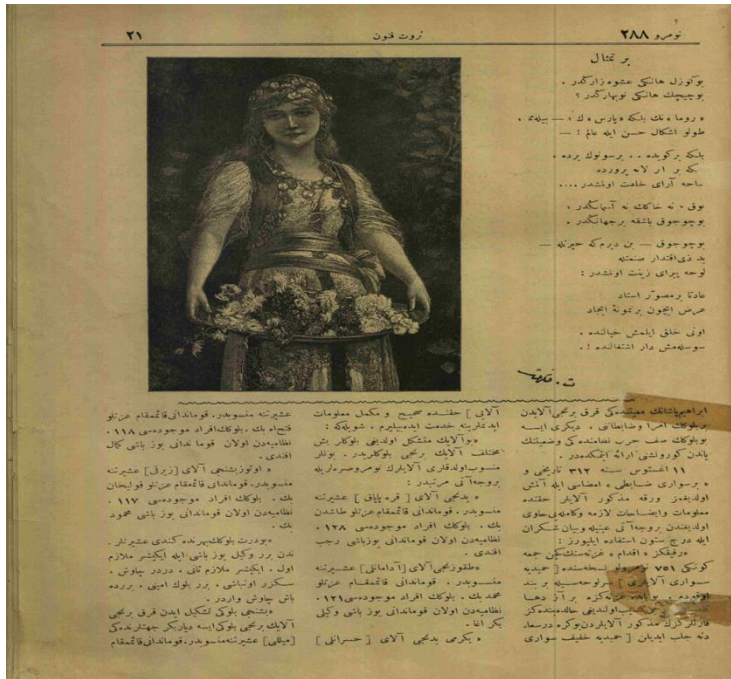 نومرو ٢٨٨
ثروت فنون
٢١
بر تمثال
بوكوزل هانكی عشوه زاركدر .
بوچيچك هانكی نوبهاركدر ؟
« روما » نك بلكه « پارس » ك ؛ — بيلمه م .
طولو اشكال حسن ايله عالم ؛ —
بلكه بركويده . . برسونوك يرده .
لانه پرورده
ساحه آرای خلقت اولمشدر ....
يوق ، نه خاكك نه آسمانكدر ؛
بوچوجوق باشقه برجهانكدر .
بوچوجوق — بن ديرم كه حيرتله —
يد ذی اقتدار صنعتله
لوحه پيرای زينت اولمشدر :
عادتا برمصور استاد
عرض ايچون برنمونهٔ ايجاد
اونی خلق ايلمش خيالنده .
سوسله مش دار اشتغالنده ! .
ت . فكرت
ابراهيم پاشانك معيتنده كی قرق برنجی آلايدن
بربلوكك امرا وضابطانی . ديكری ايسه
بوبلوكك صف حرب نظامنده كی وضعيتنك
ياندن كورولشی ارائه ايتمكده در .
١١ اغستوس سنه ٣١٢ تاريخی و
« برسواری ضابطی » امضاسی ايله آلمش
اولديغمز ورقه مذكور آلايلر حقنده
معلومات وايضاحات لازمه وكامله يی حاوی
اولديغندن بروجه آتی عينيله وبيان شكران
ايله درج ستون استفاده ايليورز :
« رفيقكز « اقدام » غزته سنك كچن جمعه
كونكی ٧٥١ نومرولو نسخه سنده [ حميديه
سواری آلايلری ] سرلوحه سيله بر بند
اوقودم . بوبنده غزته كزه بر آز دها
اولديغی حالده بنده كز
مذكور آلايلردن بوكره درسعا-
دته جلب ايديلن [ حميديه خفيف سواری
آلايی ] حقنده صحيح و مكمل معلومات
ايده بيليرم . شويله كه :
« بوآلايك متشكل اولديغی بلوكلر بش
مختلف آلايك برنجی بلوكلريدر . بونلر
منسوب اولدقلری آلايلرك نومروصره لريله
بروجه آتی مرتبدر :
« يدنجی آلای [ قره پاپاق ] عشيرتنه
منسوبدر . قوماندانی قائممقام عزتلو طاشدن
بك . بلوكك افراد موجوده سی ١٢٨ .
نظاميه دن اولان قوماندانی يوزباشی رجب
افندی .
« طقوزنجی آلای [ آدامانلی ] عشيرتنه
منسوبدر . قوماندانی قائممقام عزتلو
محمد بك . بلوكك افراد موجوده سی ١٢١ .
نظاميه دن اولان قوماندانی يوز باشی وكيلی
بكر اغا .
« يكرمی يدنجی آلای [ حسرانلی ]
عشيرتنه منسوبدر . قوماندانی قائممقام عزتلو
فتح الله بك . بلوكك افراد موجوده سی ١١٨ .
نظاميه دن اولان قوماندانی يوز باشی كمال
افندی .
« اوتوز بشنجی آلای [ زيرقی ] عشيرتنه
منسوبدر . قوماندانی قائممقام عزتلو قوليخان
بك . بلوكك افراد موجوده سی ١١٧ .
نظاميه دن اولان قوماندانی يوز باشی محمود
بك .
« بودرت بلوكك بهرنده كندی عشيرتلر-
ندن برر وكيل يوز باشی ايله ايكيشر ملازم
اول . ايكيشر ملازم ثانی . دردر چاوش .
سكزر اونباشی . برر بلوك امينی . بررده
باش چاوش واردر .
« بشنجی بلوكی تشكيل ايدن قرق برنجی
آلايك برنجی بلوكی ايسه دياربكر جهتلرنده كی
[ ميللی ] عشيرتنه منسوبدر . قوماندانی قائممقام